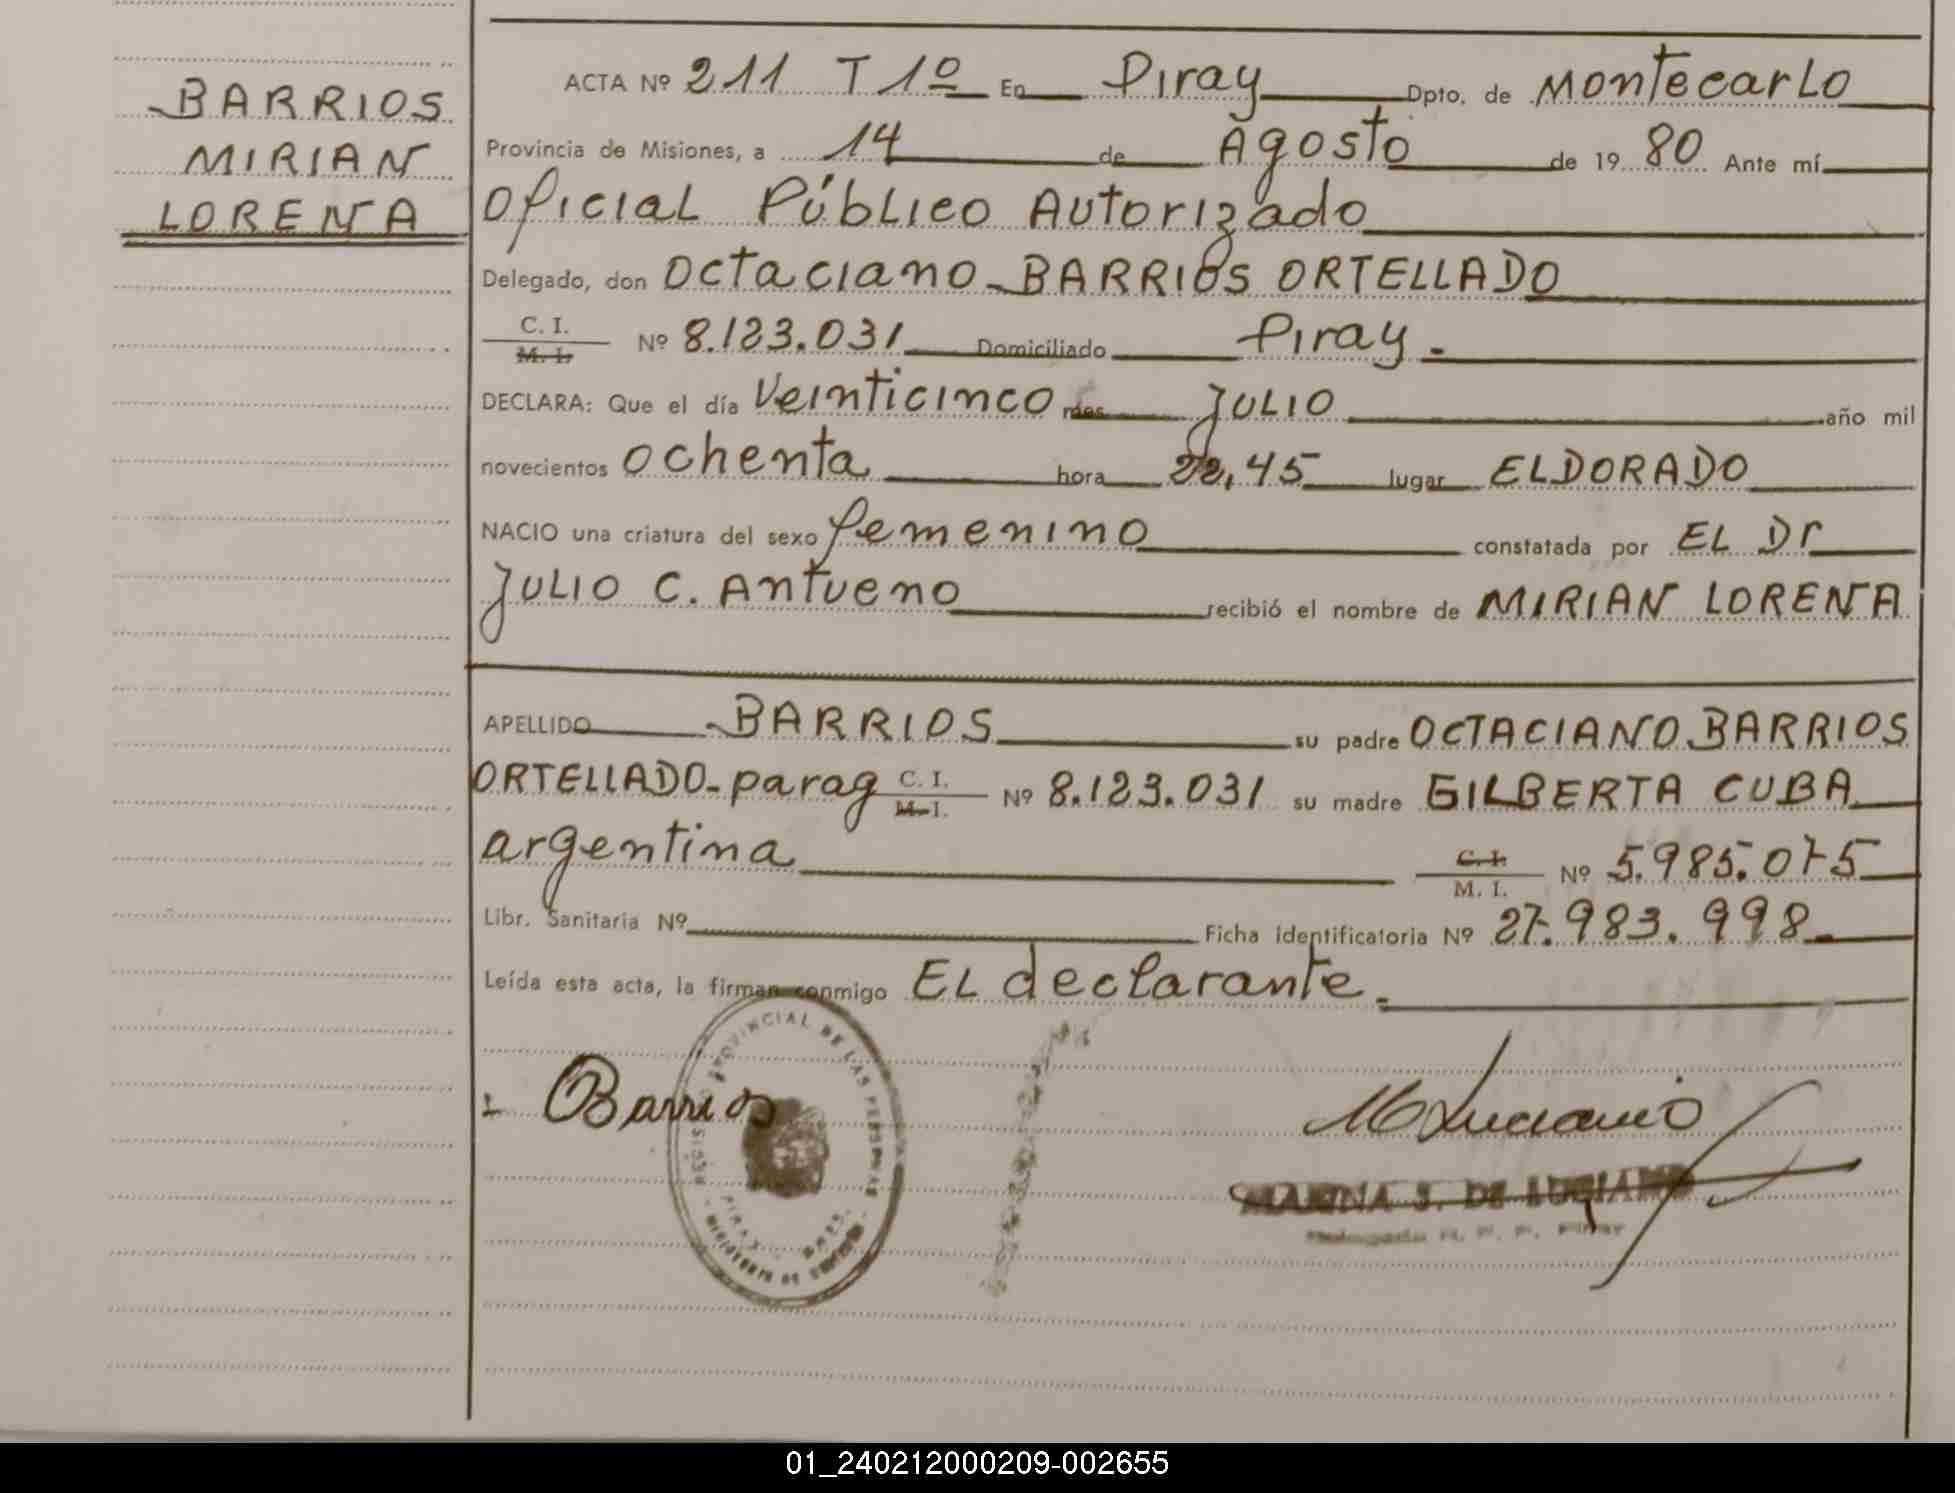 BARRIOS
MIRIAN
LORENA
ACTA Nº 211 T 1º En Piray Dpto. de Montecarlo
Provincia de Misiones, a 14 de Agosto de 19 80 Ante mí
Oficial Público Autorizado
Delegado, don Octaciano BARRIOS ORTELLADO
C. I.
M. I. Nº 8.123.031 Domiciliado Piray.
DECLARA: Que el día Veinticinco mes Julio año mil
novecientos ochenta hora 22,45 lugar ELDORADO
NACIO una criatura del sexo femenino constatada por EL Dr
Julio C. Antueno recibió el nombre de MIRIAN LORENA
APELLIDO BARRIOS su padre OCTACIANO BARRIOS
ORTELLADO-parag C. I.
M. I. Nº 8.123.031 su madre GILBERTA CUBA
argentina C. I.
M. I. Nº 5.985.075
Libr. Sanitaria Nº Ficha identificatoria Nº 27.983.998
Leída esta acta, la firman conmigo EL declarante.
Barrios
PROVINCIAL DE LAS PERSONAS
PIRAY
M Luciano
MARINA J. DE LUCIANO
01_240212000209-002655